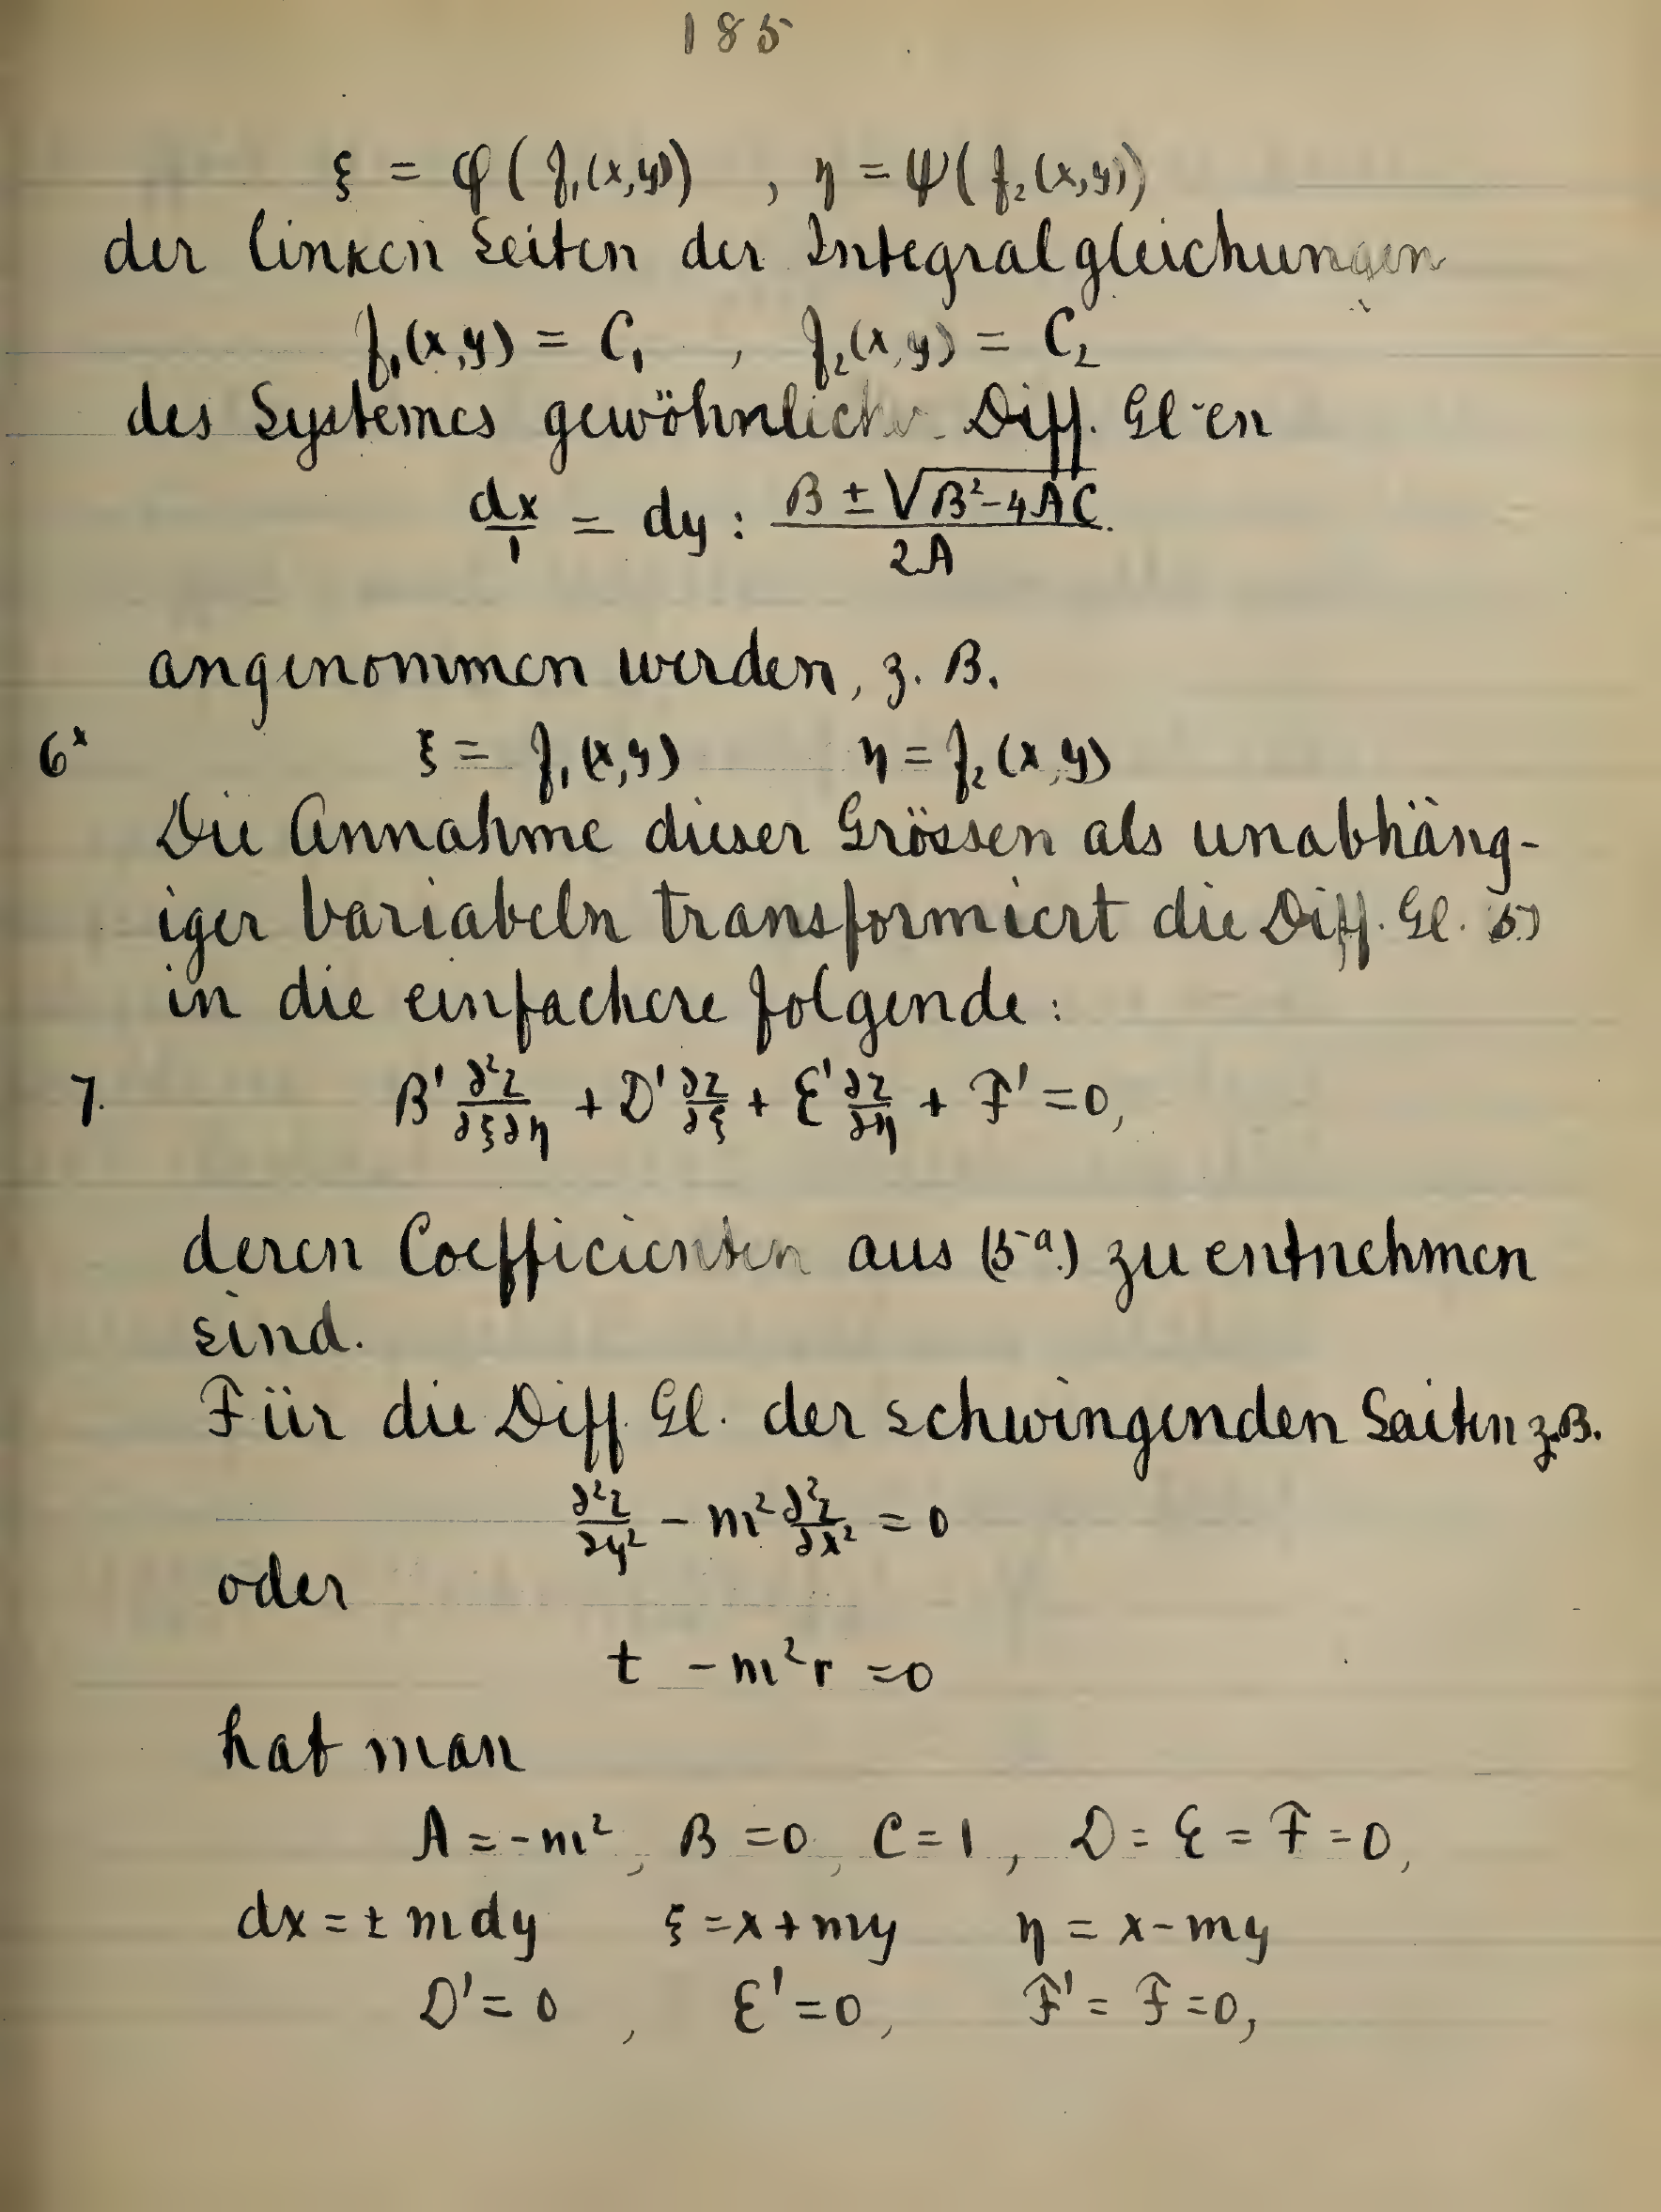 185
ξ = φ(f₁(x,y)) , η = ψ(f₂(x,y))
der linken Seiten der Integralgleichungen
f₁(x,y) = C₁ , f₂(x,y) = C₂
des Systemes gewöhnlicher Diff. Gl-en
dx/1 = dy : (B ± √(B²-4AC))/2A.
angenommen werden, z. B.
6ˣ ξ = f₁(x,y) η = f₂(x,y)
Die Annahme dieser Grössen als unabhäng-
iger Variabeln transformiert die Diff. Gl. 5)
in die einfachere folgende:
7. B' ∂²z/∂ξ∂η + D' ∂z/∂ξ + E' ∂z/∂η + F' = 0,
deren Coefficienten aus (5ᵃ.) zu entnehmen
sind.
Für die Diff. Gl. der schwingenden Saiten z.B.
∂²z/∂y² - m² ∂²z/∂x² = 0
oder
t - m²r = 0
hat man
A = -m², B = 0, C = 1, D = E = F = 0,
dx = ± mdy ξ = x + my η = x - my
D' = 0 , E' = 0, F' = F = 0,